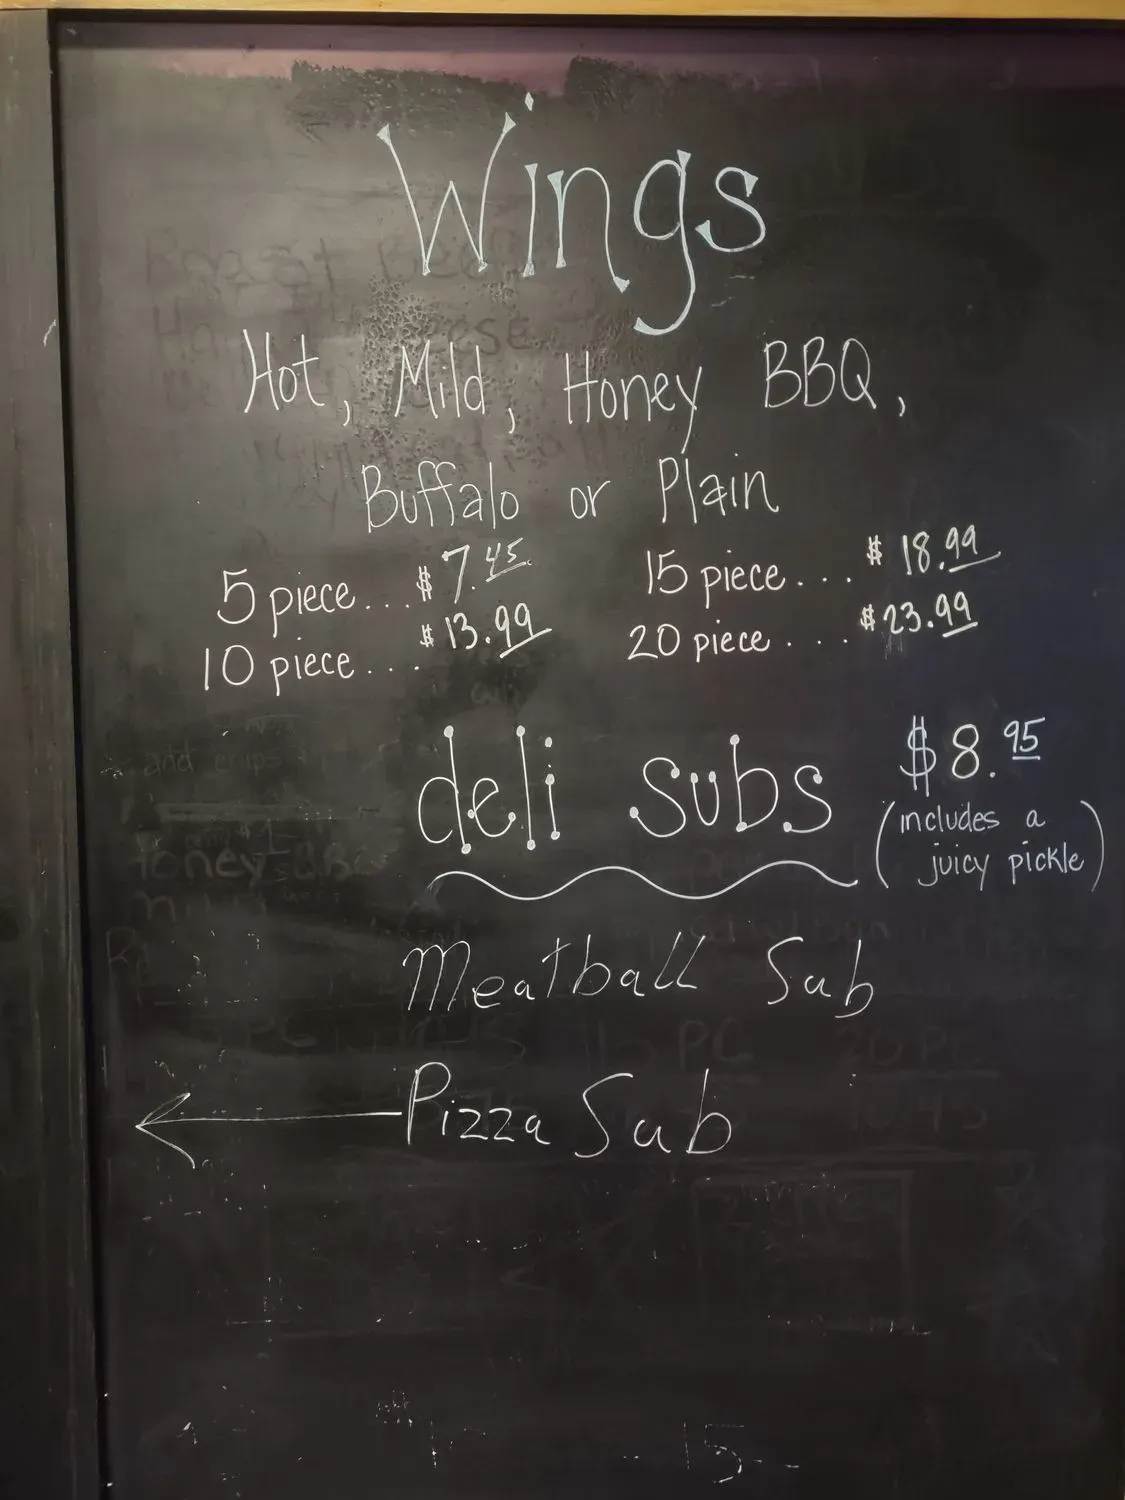 Wings
Hot, Mild, Honey BBQ,
Buffalo or Plain
5 piece... $7.45
10 piece... $13.99
15 piece... $18.99
20 piece.... $23.99
deli subs $8.95
(includes a
juicy pickle)
Meatball Sub
Pizza Sub